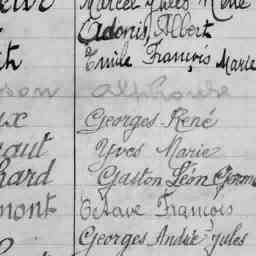 Marcel Jules René
Adonis, Albert
Emile François Marie
son Alphonse
ux Georges René
aut Yves Marie
hard Gaston Léon
mont Octave François
Georges André Jules